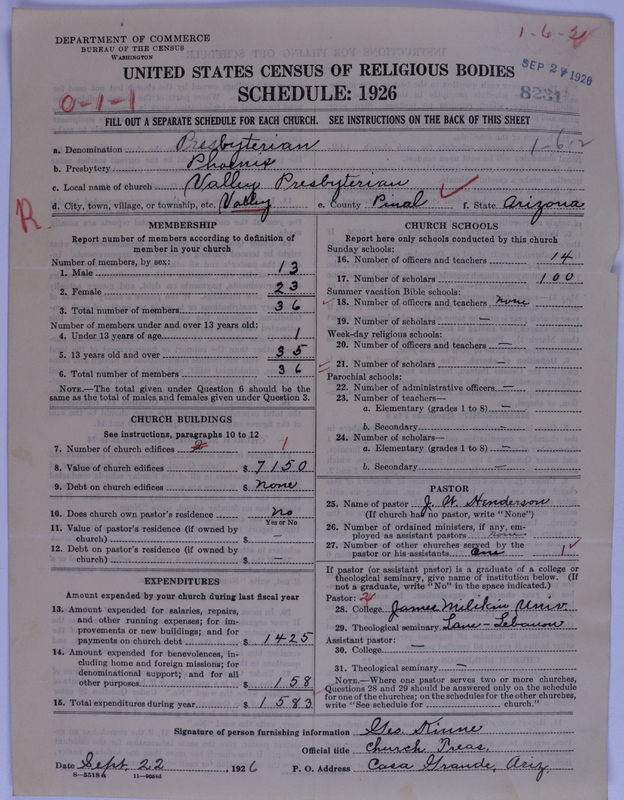 DEPARTMENT OF COMMERCE
BUREAU OF THE CENSUS
WASHINGTON
1-6-2
UNITED STATES CENSUS OF RELIGIOUS BODIES
SEP 27 1926
0-1-1
SCHEDULE: 1926
8231
FILL OUT A SEPARATE SCHEDULE FOR EACH CHURCH. SEE INSTRUCTIONS ON THE BACK OF THIS SHEET
a. Denomination Presbyterian 1-6-2
b. Presbytery Phoenix
c. Local name of church Valley Presbyterian
d. City, town, village, or township, etc. Valley e. County Pinal f. State Arizona
R.
MEMBERSHIP
Report number of members according to definition of
member in your church
Number of members, by sex:
1. Male 13
2. Female 23
3. Total number of members 36
Number of members under and over 13 years old:
4. Under 13 years of age 1
5. 13 years old and over 35
6. Total number of members 36
NOTE.—The total given under Question 6 should be
same as the total of males and females given under Question 3.
CHURCH BUILDINGS
See instructions, paragraphs 10 to 12
7. Number of church edifices 2 1
8. Value of church edifices $ 7150
9. Debt on church edifices $ None
10. Does church own pastor's residence No
Yes or No
11. Value of pastor's residence (if owned by
church) $ —
12. Debt on pastor's residence (if owned by
church) $ —
EXPENDITURES
Amount expended by your church during last fiscal year
13. Amount expended for salaries, repairs,
and other running expenses; for im-
provements or new buildings; and for
payments on church debt $ 1425
14. Amount expended for benevolences, in-
cluding home and foreign missions; for
denominational support; and for all
other purposes $ 158
15. Total expenditures during year $ 1583
CHURCH SCHOOLS
Report here only schools conducted by this church
Sunday schools:
16. Number of officers and teachers 14
17. Number of scholars 100
Summer vacation Bible schools:
18. Number of officers and teachers none
19. Number of scholars —
Week-day religious schools:
20. Number of officers and teachers —
21. Number of scholars —
Parochial schools:
22. Number of administrative officers —
23. Number of teachers—
a. Elementary (grades 1 to 8) —
b. Secondary —
24. Number of scholars—
a. Elementary (grades 1 to 8) —
b. Secondary —
PASTOR
25. Name of pastor J. W. Henderson
(If church has no pastor, write "None")
26. Number of ordained ministers, if any, em-
ployed as assistant pastors None
27. Number of other churches served by the
pastor or his assistants One 1
If pastor (or assistant pastor) is a graduate of a college or
theological seminary, give name of institution below. (If
not a graduate, write "No" in the space indicated.)
Pastor:
28. College James Milikin Univ.
29. Theological seminary Lane-Lebanon
Assistant pastor:
30. College —
31. Theological seminary —
NOTE.—Where one pastor serves two or more churches,
Questions 28 and 29 should be answered only on the schedule
for one of the churches; on the schedules for the other churches,
write "See schedule for church."
Signature of person furnishing information Geo. Kinne
Official title Church Treas.
Date Sept. 22, 1926 P. O. Address Casa Grande, Ariz.
8—5518a 11—9054d